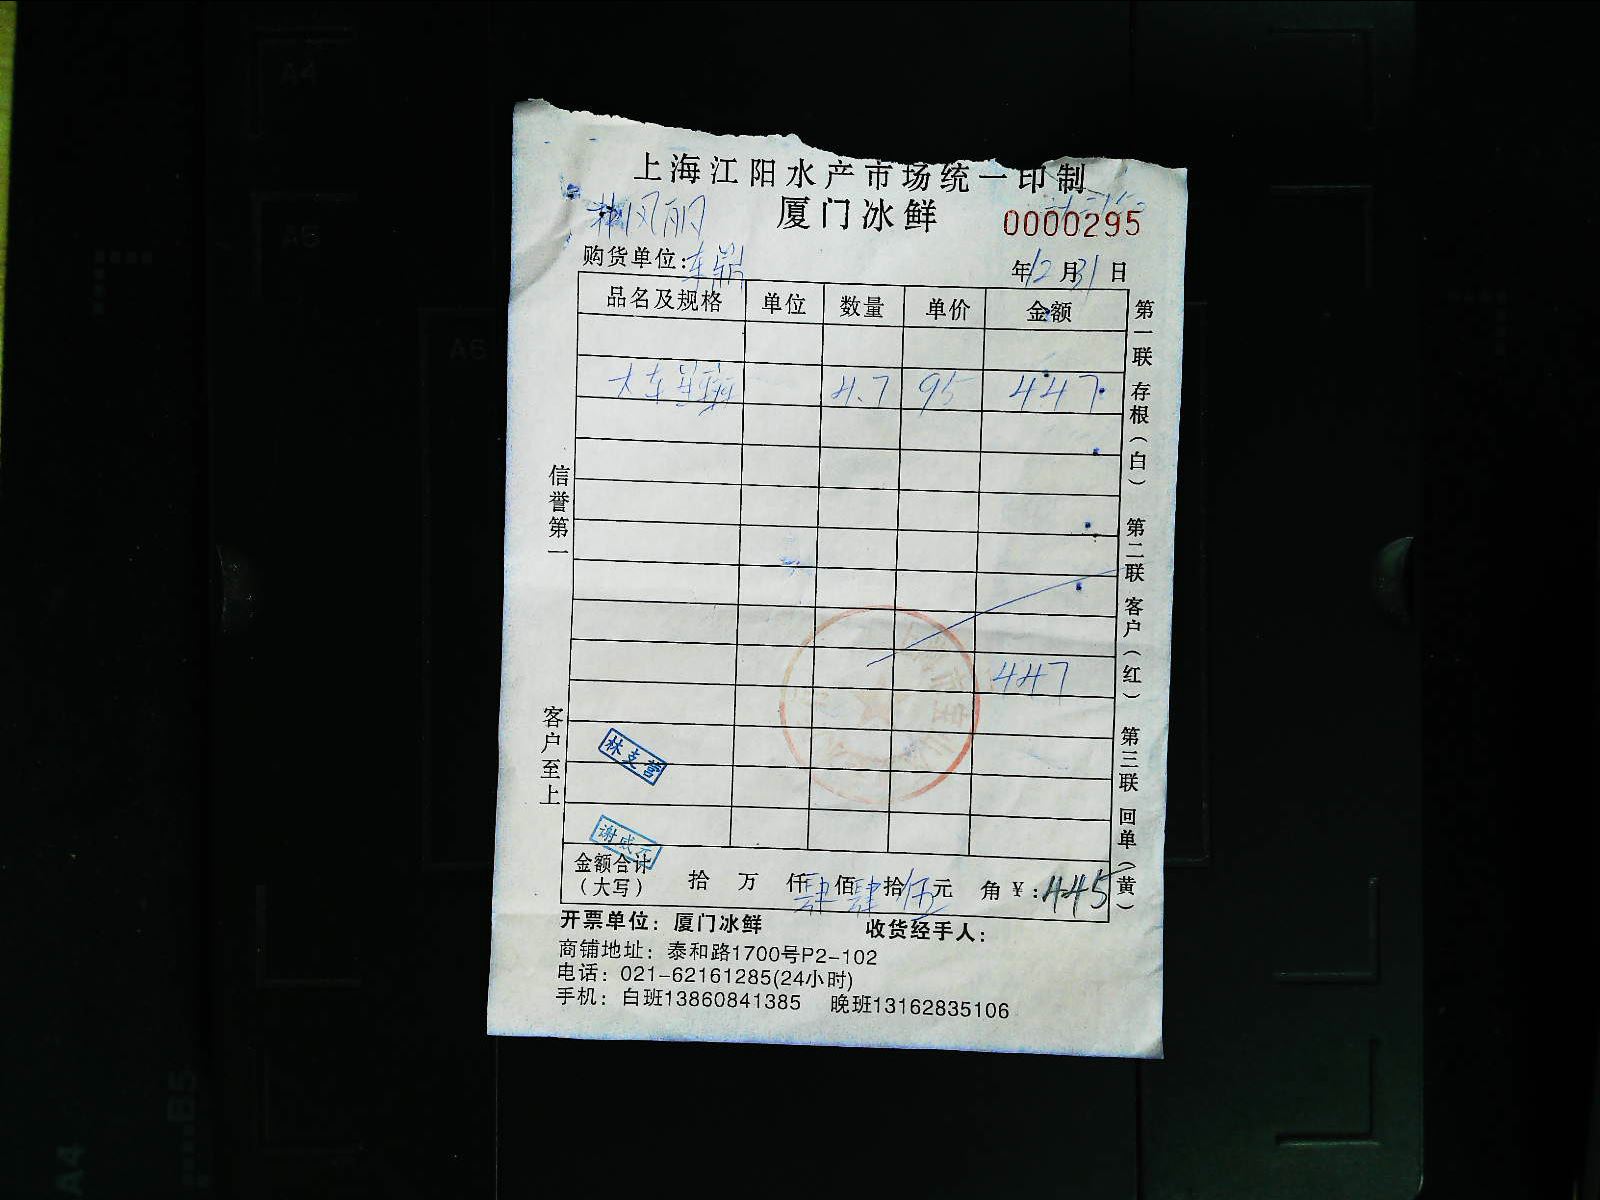 上海江阳水产市场统一印制
厦门冰鲜
0000295
林凤丽
购货单位:东鼎
年12月31日
品名及规格 单位 数量 单价 金额
4.7 95 447
447
林支营
谢成元
金额合计(大写) 拾 万 仟肆佰肆拾伍元 角 ¥:445
开票单位:厦门冰鲜 收货经手人:
商铺地址:泰和路1700号P2-102
电话:021-62161285(24小时)
手机:白班13860841385 晚班13162835106
信誉第一
客户至上
第一联 存根(白) 第二联 客户(红) 第三联 回单(黄)
A4
A5
A6
B5
A4